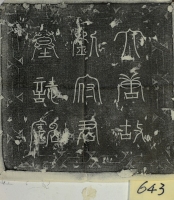 大唐故
府君
墓誌銘
643